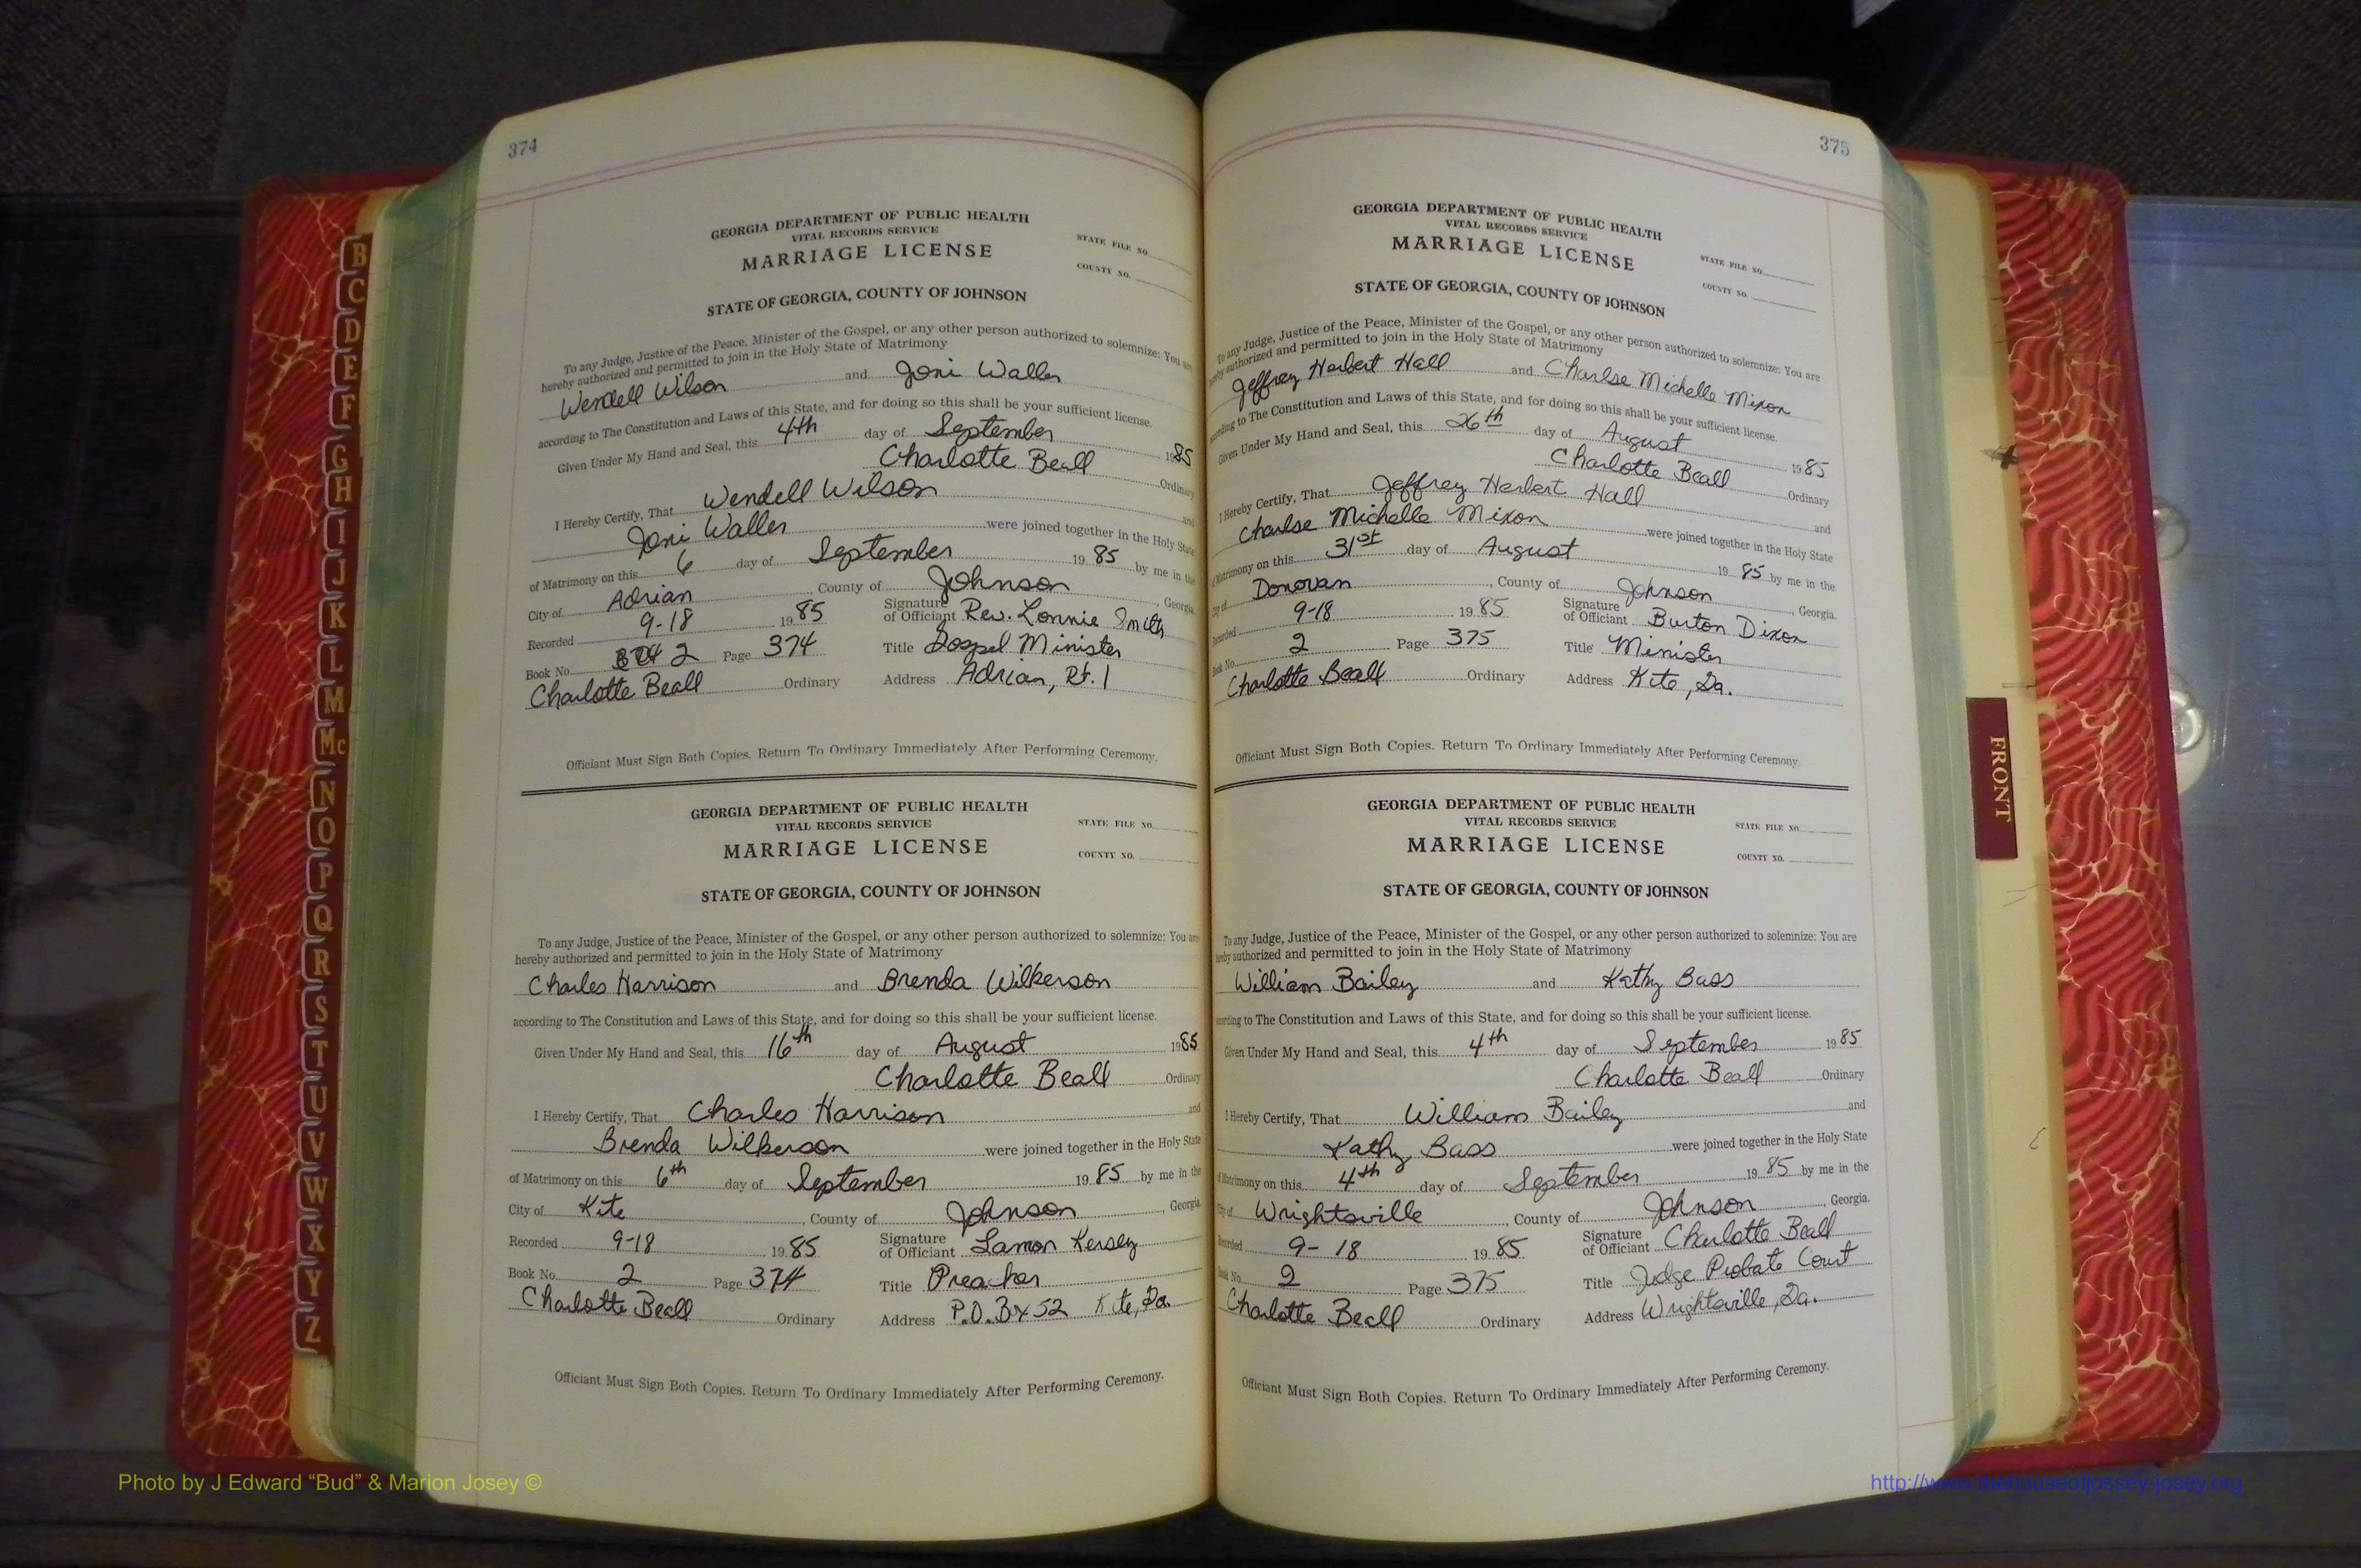 374
GEORGIA DEPARTMENT OF PUBLIC HEALTH
VITAL RECORDS SERVICE
MARRIAGE LICENSE
STATE FILE NO.
COUNTY NO.
STATE OF GEORGIA, COUNTY OF JOHNSON
To any Judge, Justice of the Peace, Minister of the Gospel, or any other person authorized to solemnize: You are
hereby authorized and permitted to join in the Holy State of Matrimony
Wendell Wilson and Joni Waller
according to The Constitution and Laws of this State, and for doing so this shall be your sufficient license.
Given Under My Hand and Seal, this 4th day of September 1985
Charlotte Beall Ordinary
I Hereby Certify, That Wendell Wilson and
Joni Waller were joined together in the Holy State
of Matrimony on this 6 day of September 19 85 by me in the
City of Adrian, County of Johnson, Georgia
Recorded 9-18 19 85 Signature of Officiant Rev. Lonnie Smith
Book No. 2 Page 374 Title Gospel Minister
Charlotte Beall Ordinary Address Adrian, Rt. 1
Officiant Must Sign Both Copies. Return To Ordinary Immediately After Performing Ceremony.
GEORGIA DEPARTMENT OF PUBLIC HEALTH
VITAL RECORDS SERVICE
MARRIAGE LICENSE
STATE FILE NO.
COUNTY NO.
STATE OF GEORGIA, COUNTY OF JOHNSON
To any Judge, Justice of the Peace, Minister of the Gospel, or any other person authorized to solemnize: You are
hereby authorized and permitted to join in the Holy State of Matrimony
Charles Harrison and Brenda Wilkerson
according to The Constitution and Laws of this State, and for doing so this shall be your sufficient license.
Given Under My Hand and Seal, this 16th day of August 1985
Charlotte Beall Ordinary
I Hereby Certify, That Charles Harrison and
Brenda Wilkerson were joined together in the Holy State
of Matrimony on this 6th day of September 19 85 by me in the
City of Kite, County of Johnson, Georgia
Recorded 9-18 19 85 Signature of Officiant Lamon Kersey
Book No. 2 Page 374 Title Preacher
Charlotte Beall Ordinary Address P.O. Bx 52 Kite, Ga.
Officiant Must Sign Both Copies. Return To Ordinary Immediately After Performing Ceremony.
375
GEORGIA DEPARTMENT OF PUBLIC HEALTH
VITAL RECORDS SERVICE
MARRIAGE LICENSE
STATE FILE NO.
COUNTY NO.
STATE OF GEORGIA, COUNTY OF JOHNSON
To any Judge, Justice of the Peace, Minister of the Gospel, or any other person authorized to solemnize: You are
hereby authorized and permitted to join in the Holy State of Matrimony
Jeffrey Herbert Hall and Charlse Michelle Mixon
according to The Constitution and Laws of this State, and for doing so this shall be your sufficient license.
Given Under My Hand and Seal, this 26th day of August 1985
Charlotte Beall Ordinary
I Hereby Certify, That Jeffrey Herbert Hall and
Charlse Michelle Mixon were joined together in the Holy State
of Matrimony on this 31st day of August 19 85 by me in the
City of Donovan, County of Johnson, Georgia.
Recorded 9-18 19 85 Signature of Officiant Burton Dixon
Book No. 2 Page 375 Title Minister
Charlotte Beall Ordinary Address Kite, Ga.
Officiant Must Sign Both Copies. Return To Ordinary Immediately After Performing Ceremony.
GEORGIA DEPARTMENT OF PUBLIC HEALTH
VITAL RECORDS SERVICE
MARRIAGE LICENSE
STATE FILE NO.
COUNTY NO.
STATE OF GEORGIA, COUNTY OF JOHNSON
To any Judge, Justice of the Peace, Minister of the Gospel, or any other person authorized to solemnize: You are
hereby authorized and permitted to join in the Holy State of Matrimony
William Bailey and Kathy Bass
according to The Constitution and Laws of this State, and for doing so this shall be your sufficient license.
Given Under My Hand and Seal, this 4th day of September 19 85
Charlotte Beall Ordinary
I Hereby Certify, That William Bailey and
Kathy Bass were joined together in the Holy State
of Matrimony on this 4th day of September 19 85 by me in the
City of Wrightsville, County of Johnson, Georgia.
Recorded 9-18 19 85 Signature of Officiant Charlotte Beall
Book No. 2 Page 375 Title Judge Probate Court
Charlotte Beall Ordinary Address Wrightsville, Ga.
Officiant Must Sign Both Copies. Return To Ordinary Immediately After Performing Ceremony.
B
C
D
E
F
G
H
I
J
K
L
M
Mc
N
O
P
Q
R
S
T
U
V
W
X
Y
Z
FRONT
Photo by J Edward “Bud” & Marion Josey ©
http://www.thehouseofjossey-josey.org